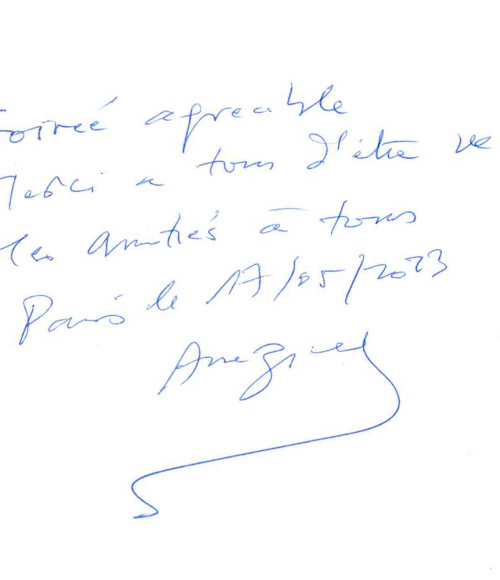 soirée agréable
Merci a tous d'être ve
les amitiés à tous
Paris le 17/05/2023